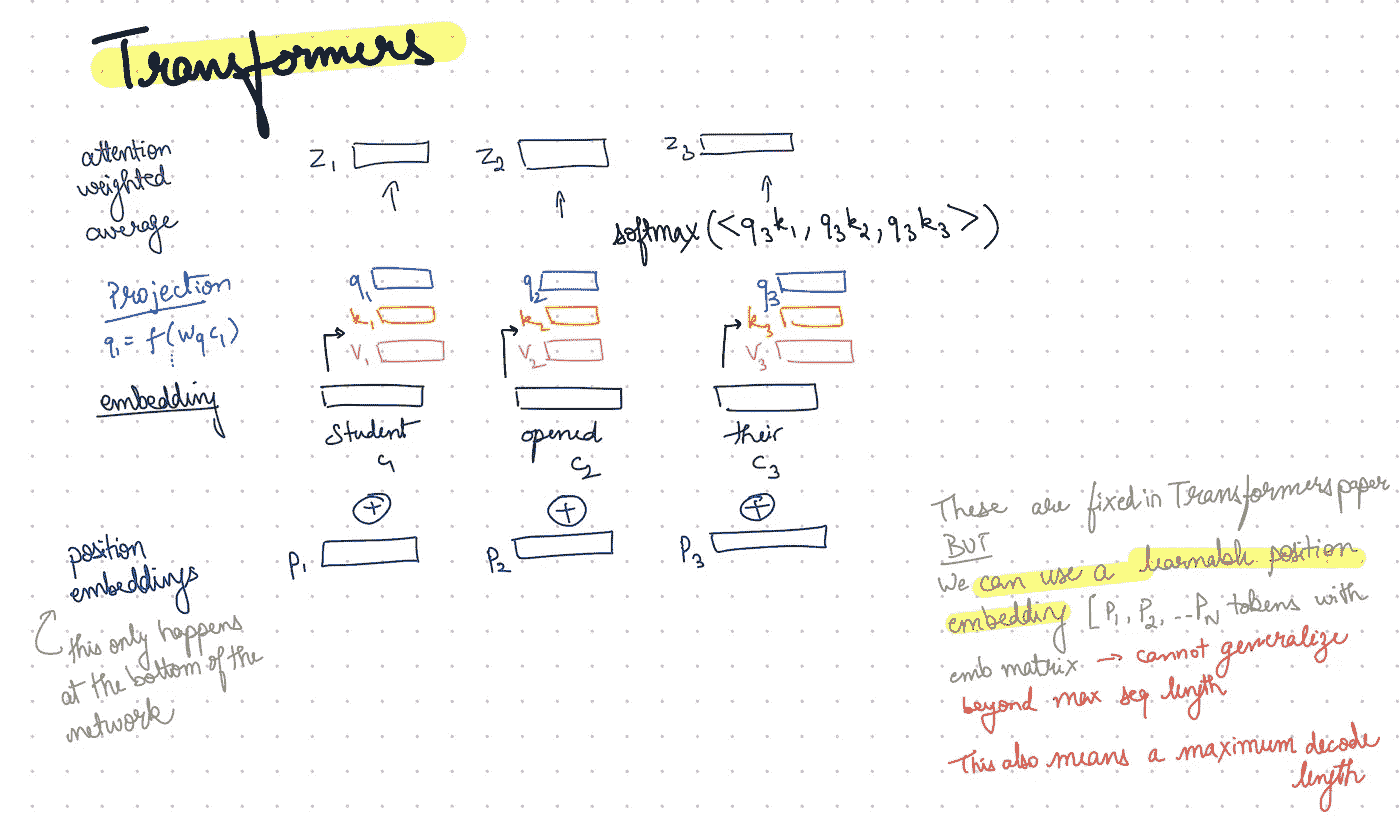 Transformers
attention
weighted
average
z₁
z₂
z₃
softmax(<q₃k₁, q₃k₂, q₃k₃>)
Projection
q₁ = f(Wq c₁)
q₁
k₁
v₁
q₂
k₂
v₂
q₃
k₃
v₃
embedding
Student
opened
their
c₁
c₂
c₃
+
+
+
position
embeddings
P₁
P₂
P₃
this only happens
at the bottom of the
network
These are fixed in Transformers paper
BUT
We can use a learnable position
embedding [P₁, P₂, ...PN tokens with
emb matrix. → cannot generalize
beyond max seq length
This also means a maximum decode
length